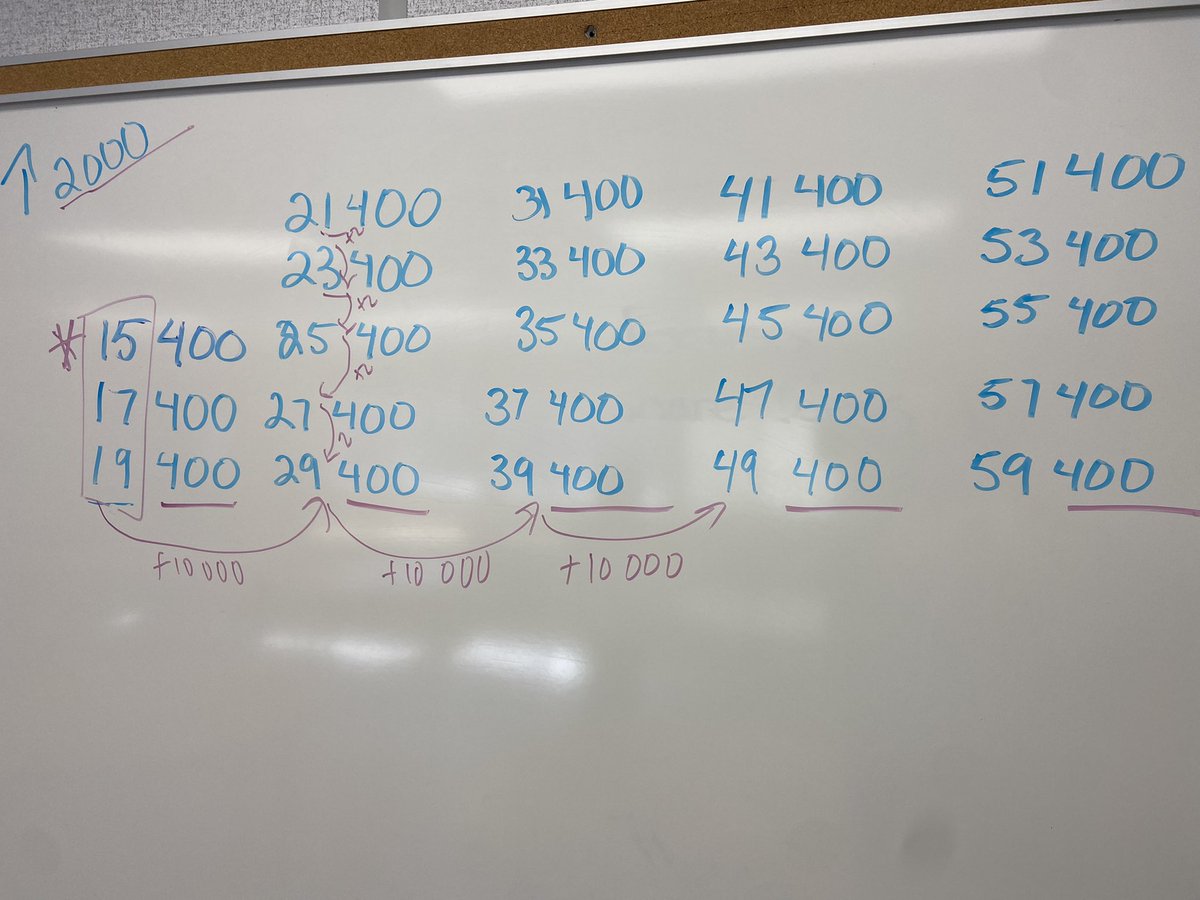 ↑ 2000
21 400 31 400 41 400 51 400
23 400 33 400 43 400 53 400
* 15 400 25 400 35 400 45 400 55 400
17 400 27 400 37 400 47 400 57 400
19 400 29 400 39 400 49 400 59 400
+2
+2
+2
2
+10 000 +10 000 +10 000